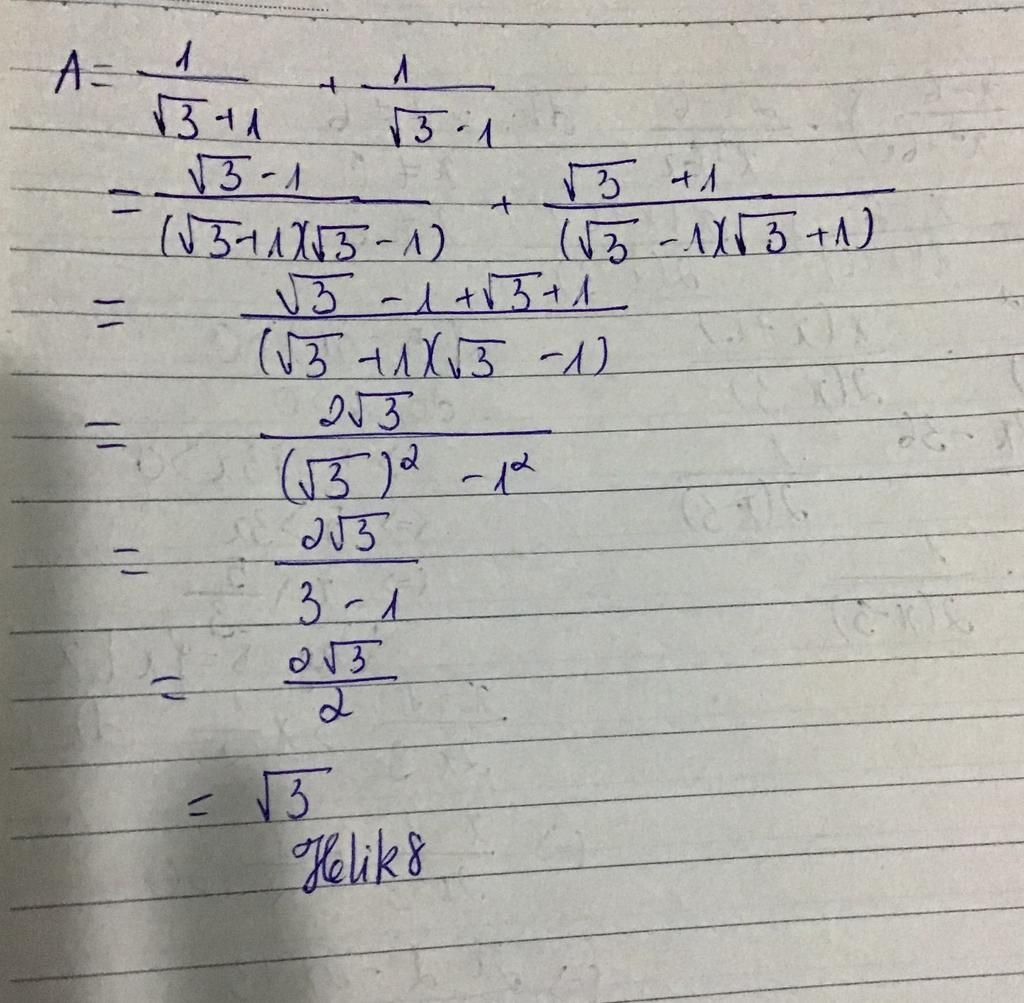 A = 1/(√3+1) + 1/(√3-1)
= (√3-1)/((√3+1)(√3-1)) + (√3+1)/((√3-1)(√3+1))
= (√3-1+√3+1)/((√3+1)(√3-1))
= 2√3/((√3)²-1²)
= 2√3/(3-1)
= 2√3/2
= √3
Helik8